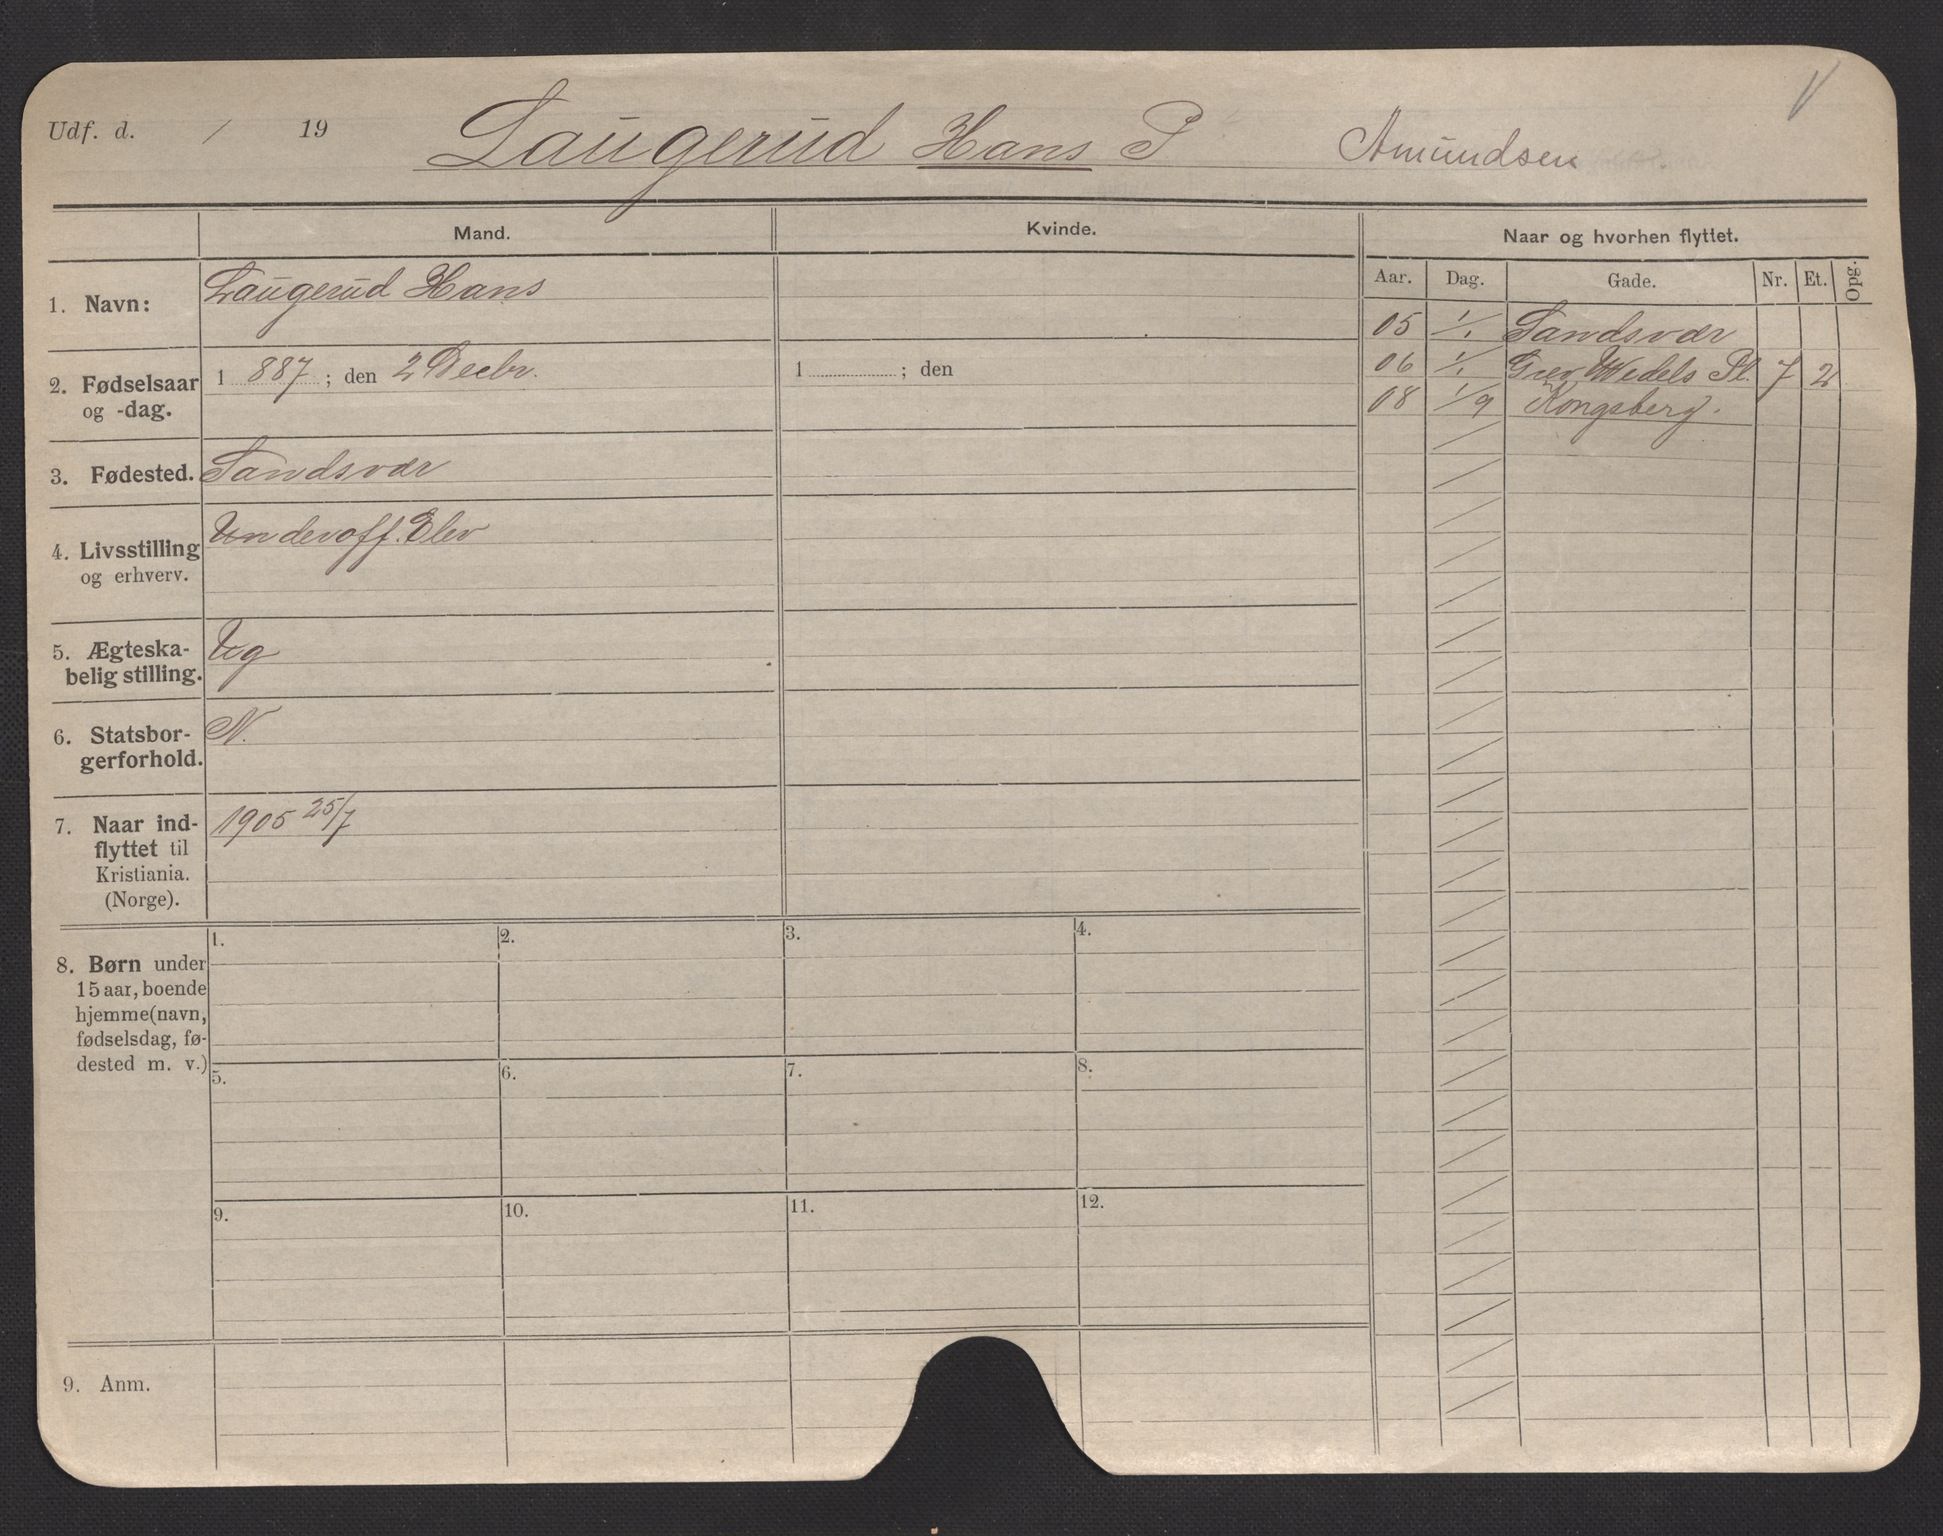 Udf. d. / 19 Laugerud Hans P Amundsen V
Mand. Kvinde. Naar og hvorhen flyttet.
Aar. Dag. Gade. Nr. Et. Opg.
1. Navn: Laugerud Hans
2. Fødselsaar og -dag. 1 887 ; den 2 Decbr. 1 ; den
3. Fødested. Sandsvær
4. Livsstilling og erhverv. Underoff. Elev
5. Ægteska-
belig stilling. Ug
6. Statsbor-
gerforhold. N.
7. Naar ind-
flyttet til
Kristiania.
(Norge). 1905 25/7
05 1/1 Sandsvær
06 1/1 Grev Wedels Pl. 7 2
08 1/9 Kongsberg.
8. Børn under
15 aar, boende
hjemme (navn,
fødselsdag, fø-
dested m. v.)
1. 2. 3. 4.
5. 6. 7. 8.
9. 10. 11. 12.
9. Anm.